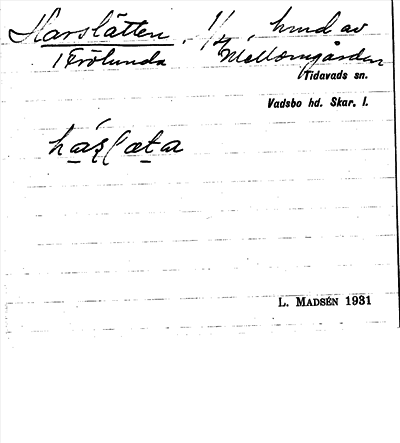 Harslätten. 1/4 hmd av
i Frölunda Mellomgården
Tidavads sn.
Vadsbo hd. Skar. l.
L. MADSÉN 1931